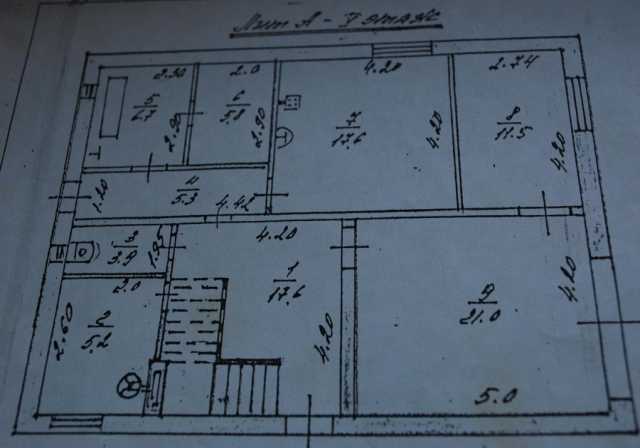 Лит А - 1 этаж
2.30
2.0
4.20
2.74
5
6.7
6
5.8
7
17.6
8
11.5
2.90
2.90
4.20
4.20
4
5.3
1.20
4.42
3
3.9
4.20
2.0
1
17.6
9
21.0
4.20
2.60
2
5.2
4.20
5.0